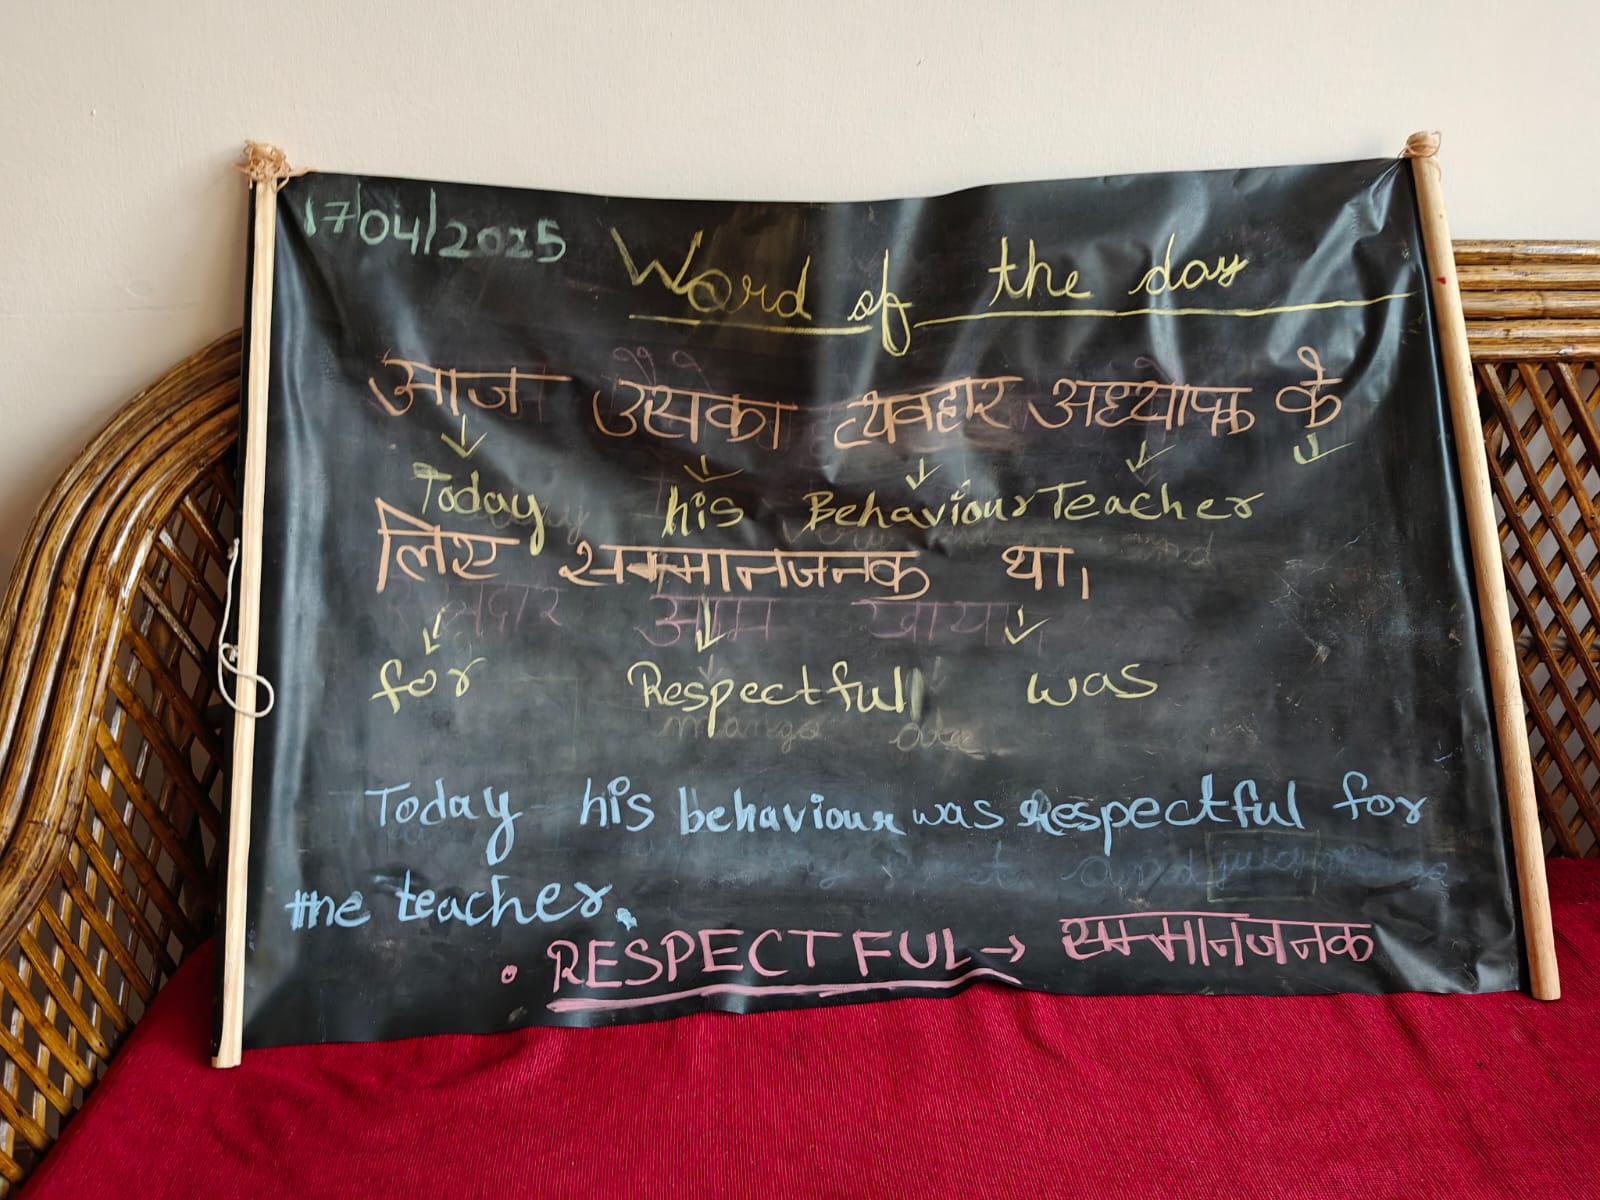 17/04/2025
Word of the day
आज उसका व्यवहार अध्यापक के
Today his Behaviour Teacher
लिए सम्मानजनक था।
for Respectful was
Today his behaviour was respectful for
the teacher.
• RESPECTFUL → सम्मानजनक